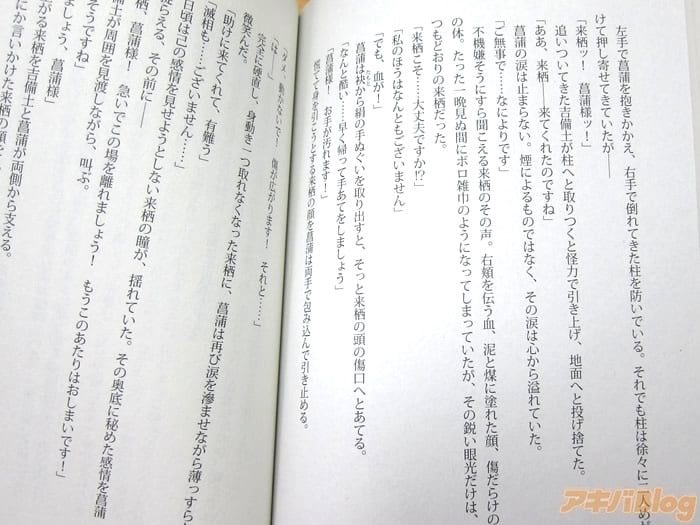 左手で菖蒲を抱きかかえ、右手で倒れてきた柱を防いでいる。それでも柱は徐々に二人め
けて押し寄せてきていたが――
「来栖ッ! 菖蒲様ッ!」
追いついてきた吉備土が柱へと取りつくと怪力で引き上げ、地面へと投げ捨てた。
「ああ、来栖――来てくれたのですね」
菖蒲の涙は止まらない。煙によるものではなく、その涙は心から溢れていた。
「ご無事で……なによりです」
不機嫌そうにすら聞こえる来栖のその声。右頬を伝う血、泥と煤に塗れた顔、傷だらけの
の体。たった一晩見ぬ間にボロ雑巾のようになってしまっていたが、その鋭い眼光だけは、
つもどおりの来栖だった。
「来栖こそ…大丈夫ですか!?」
「私のほうはなんともございません」
「でも、血が!」
菖蒲は袂から絹の手ぬぐいを取り出すと、そっと来栖の頭の傷口へとあてる。
たもと
「なんと酷い……早く帰って手あてをしましょう」
「菖蒲様! お手が汚れます!」
慌てて身を引こうとする来栖の顔を菖蒲は両手で包み込んで引き止める。
「ダメ、動かないで! 傷が広がります! それと……」
「は――」
完全に硬直し、身動き一つ取れなくなった来栖に、菖蒲は再び涙を滲ませながら薄っすら
微笑んだ。
「助けに来てくれて、有難う」
「滅相も……ございません……」
日頃はこの感情を見せようとしない来栖の瞳が、揺れていた。その奥底に秘めた感情を菖蒲
らえる、その前に――
菖蒲様! 急いでこの場を離れましょう! もうこのあたりはおしまいです!」
備土が周囲を見渡しながら、叫ぶ。
そうですね」
しょう、菖蒲様」
にか言いかけた来栖を吉備土と菖蒲が両側から支える。
アキバBlog